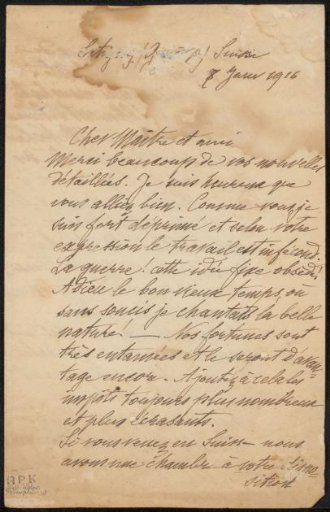 Suisse
7 Janv 1916
Cher Maître et ami
Merci beaucoup de vos nouvelles
détaillées. Je suis heureux que
vous alliez bien. Comme vous je
suis fort déprimé et selon votre
expression le travail est infécond.
La guerre! cette idée fixe obsède!
Adieu le bon vieux temps, où
sans soucis je chantais la belle
nature! — Nos fortunes sont
très entamées et le seront davan-
tage encore. Ajoutez à cela les
impôts toujours plus nombreux
et plus écrasants.
Si vous venez en Suisse nous
avons une chambre à votre dispo
sition